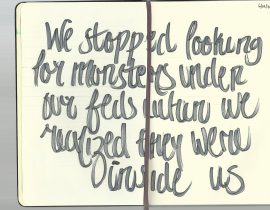 We stopped looking
for monsters under
our beds when we
realized they were
inside us